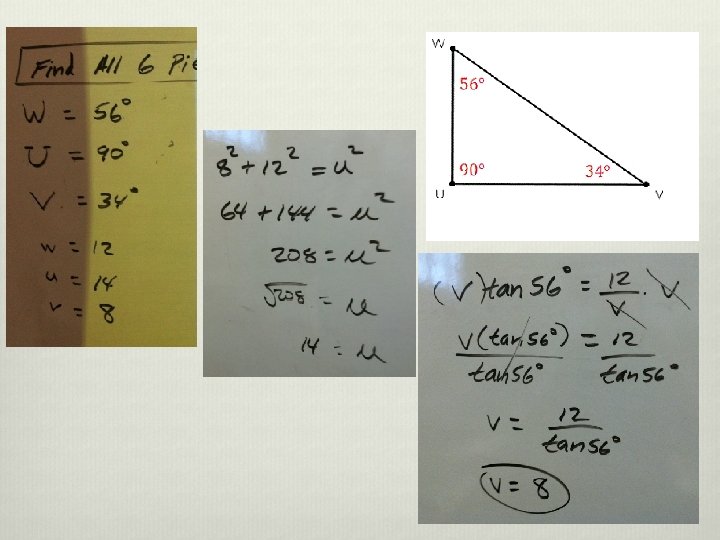 Find All 6
W = 56°
U = 90°
V = 34°
w = 12
u = 14
v = 8
8² + 12² = u²
64 + 144 = u²
208 = u²
√208 = u
14 = u
W
56°
90°
34°
U
V
(V) tan 56° = 12/V · V
V(tan 56°)/tan 56° = 12/tan 56°
V = 12/tan 56°
V = 8